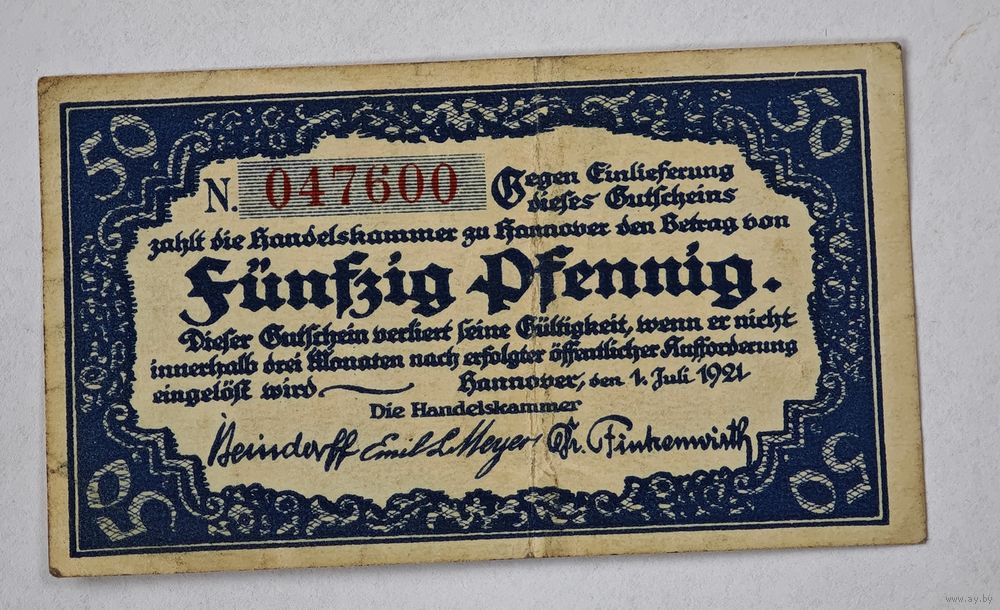 50
50
N. 047600
Gegen Einlieferung
dieses Gutscheins
zahlt die Handelskammer zu Hannover den Betrag von
Fünfzig Pfennig.
Dieser Gutschein verliert seine Gültigkeit, wenn er nicht
innerhalb drei Monaten nach erfolgter öffentlicher Aufforderung
eingelöst wird.
Hannover, den 1. Juli 1921
Die Handelskammer
Beindorff Emil L. Meyer Dr. Finkenwirth
50
50
www.ay.by